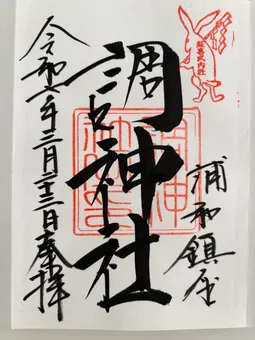 延喜式内社
浦和鎮座
調神社
令和六年三月二十三日奉拝